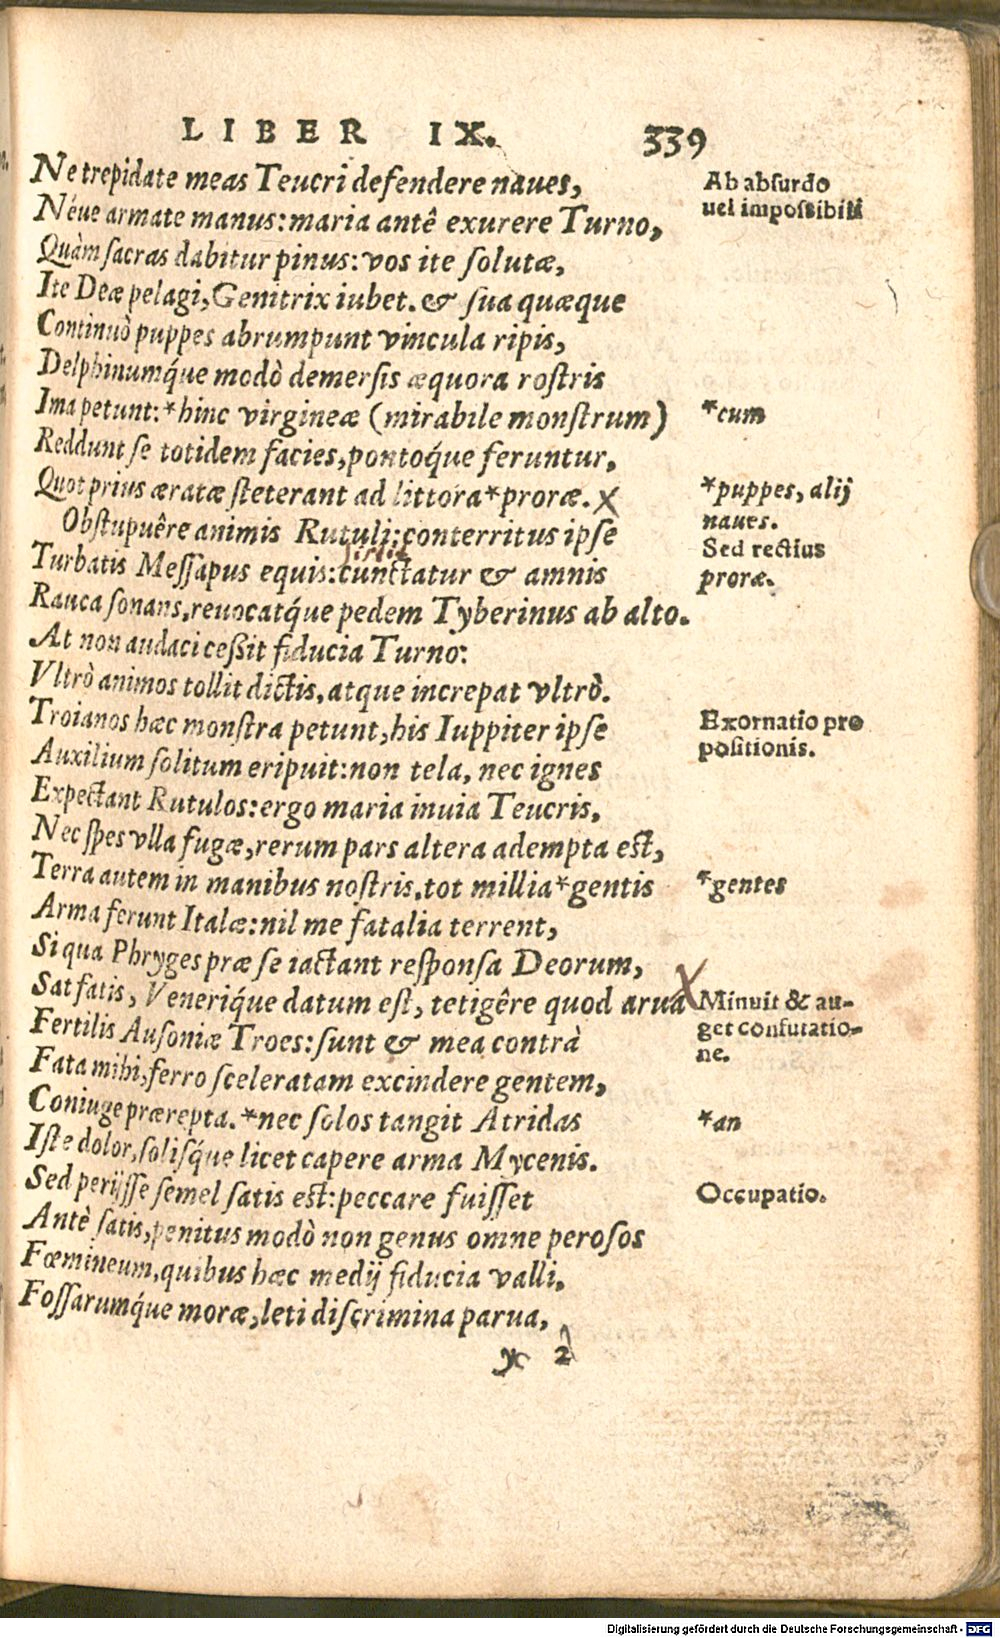 LIBER IX. 339
Ne trepidate meas Teucri defendere naues,
Néue armate manus: maria antê exurere Turno,
Quàm sacras dabitur pinus: vos ite solutæ,
Ite Deæ pelagi, Genitrix iubet. & sua quæque
Continuò puppes abrumpunt vincula ripis,
Delphinumq́ue modò demersis æquora rostris
Ima petunt: *hinc virgineæ (mirabile monstrum)
Reddunt se totidem facies, pontoq́ue feruntur,
Quot prius æratæ steterant ad littora *proræ. X
Obstupuêre animis Rutuli: conterritus ipse
Turbatis Messapus equis: cunctatur & amnis
Rauca sonans, reuocatq́ue pedem Tyberinus ab alto.
At non audaci ceßit fiducia Turno:
Vltrò animos tollit dictis, atque increpat vltrò.
Troianos hæc monstra petunt, his Iuppiter ipse
Auxilium solitum eripuit: non tela, nec ignes
Expectant Rutulos: ergo maria inuia Teucris,
Nec spes vlla fugæ, rerum pars altera adempta est,
Terra autem in manibus nostris. tot millia *gentis
Arma ferunt Italæ: nil me fatalia terrent,
Si qua Phryges præ se iactant responsa Deorum,
Sat fatis, Veneriq́ue datum est, tetigêre quod arua X
Fertilis Ausoniæ Troes: sunt & mea contrà
Fata mihi, ferro sceleratam excindere gentem,
Coniuge prærepta. *nec solos tangit Atridas
Iste dolor, solisq́ue licet capere arma Mycenis.
Sed perijsse semel satis est: peccare fuisset
Antè satis, penitus modò non genus omne perosos
Fœmineum, quibus hæc medij fiducia valli,
Fossarumq́ue moræ, leti discrimina parua,
y 2
Ab absurdo
uel impossibili
*cum
*puppes, alij
naues.
Sed rectius
proræ.
Exornatio pro
positionis.
*gentes
Minuit & au-
get confutatio-
ne.
*an
Occupatio.
Digitalisierung gefördert durch die Deutsche Forschungsgemeinschaft - DFG